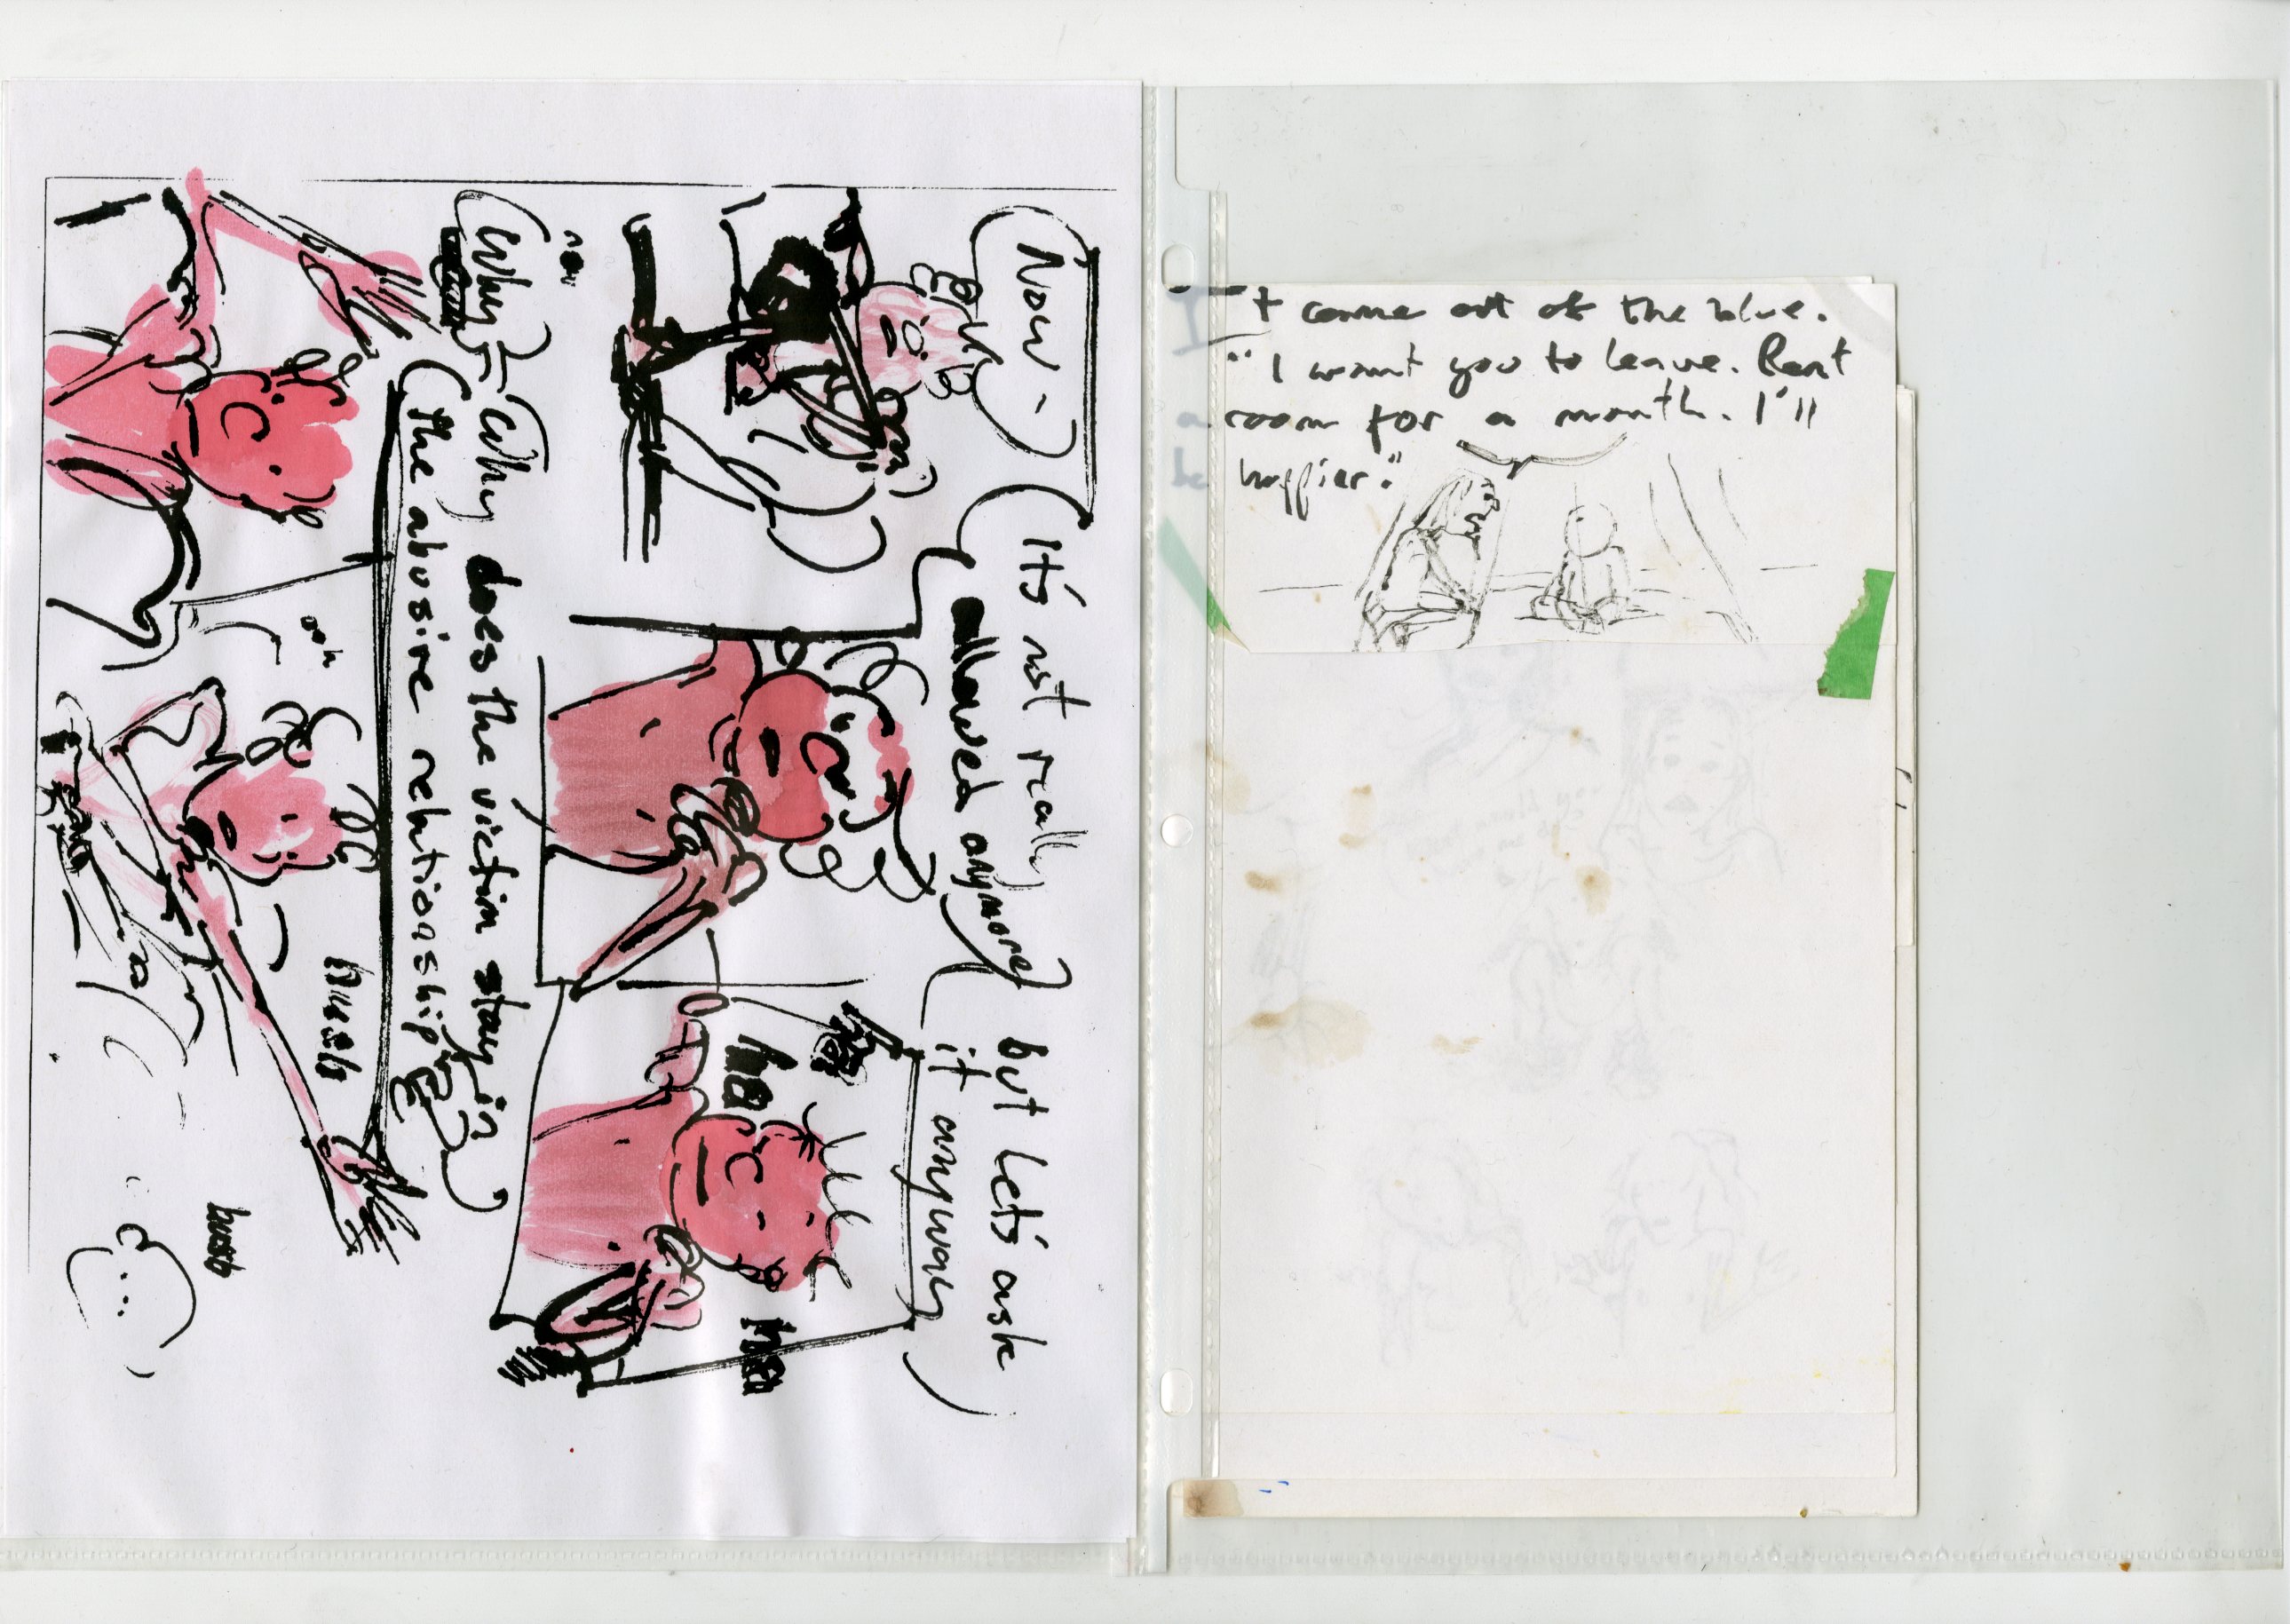 Now -
It's not really
allowed anymore
but let's ask
it anyway
ha
Why - Why does the victim stay in
the abusive relationship?
ooh
hush
hush
...
It came out of the blue.
"I want you to leave. Rent
a room for a month. I'll
be happier."